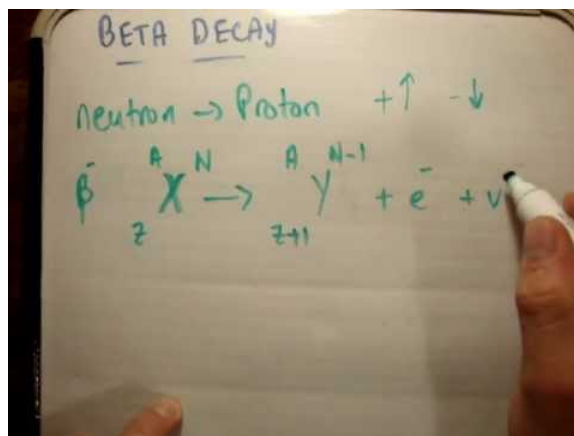 BETA DECAY
neutron → Proton +↑ -↓
β⁻ ᴬ_Z X ᴺ → ᴬ_Z+1 Y ᴺ⁻¹ + e⁻ + ν